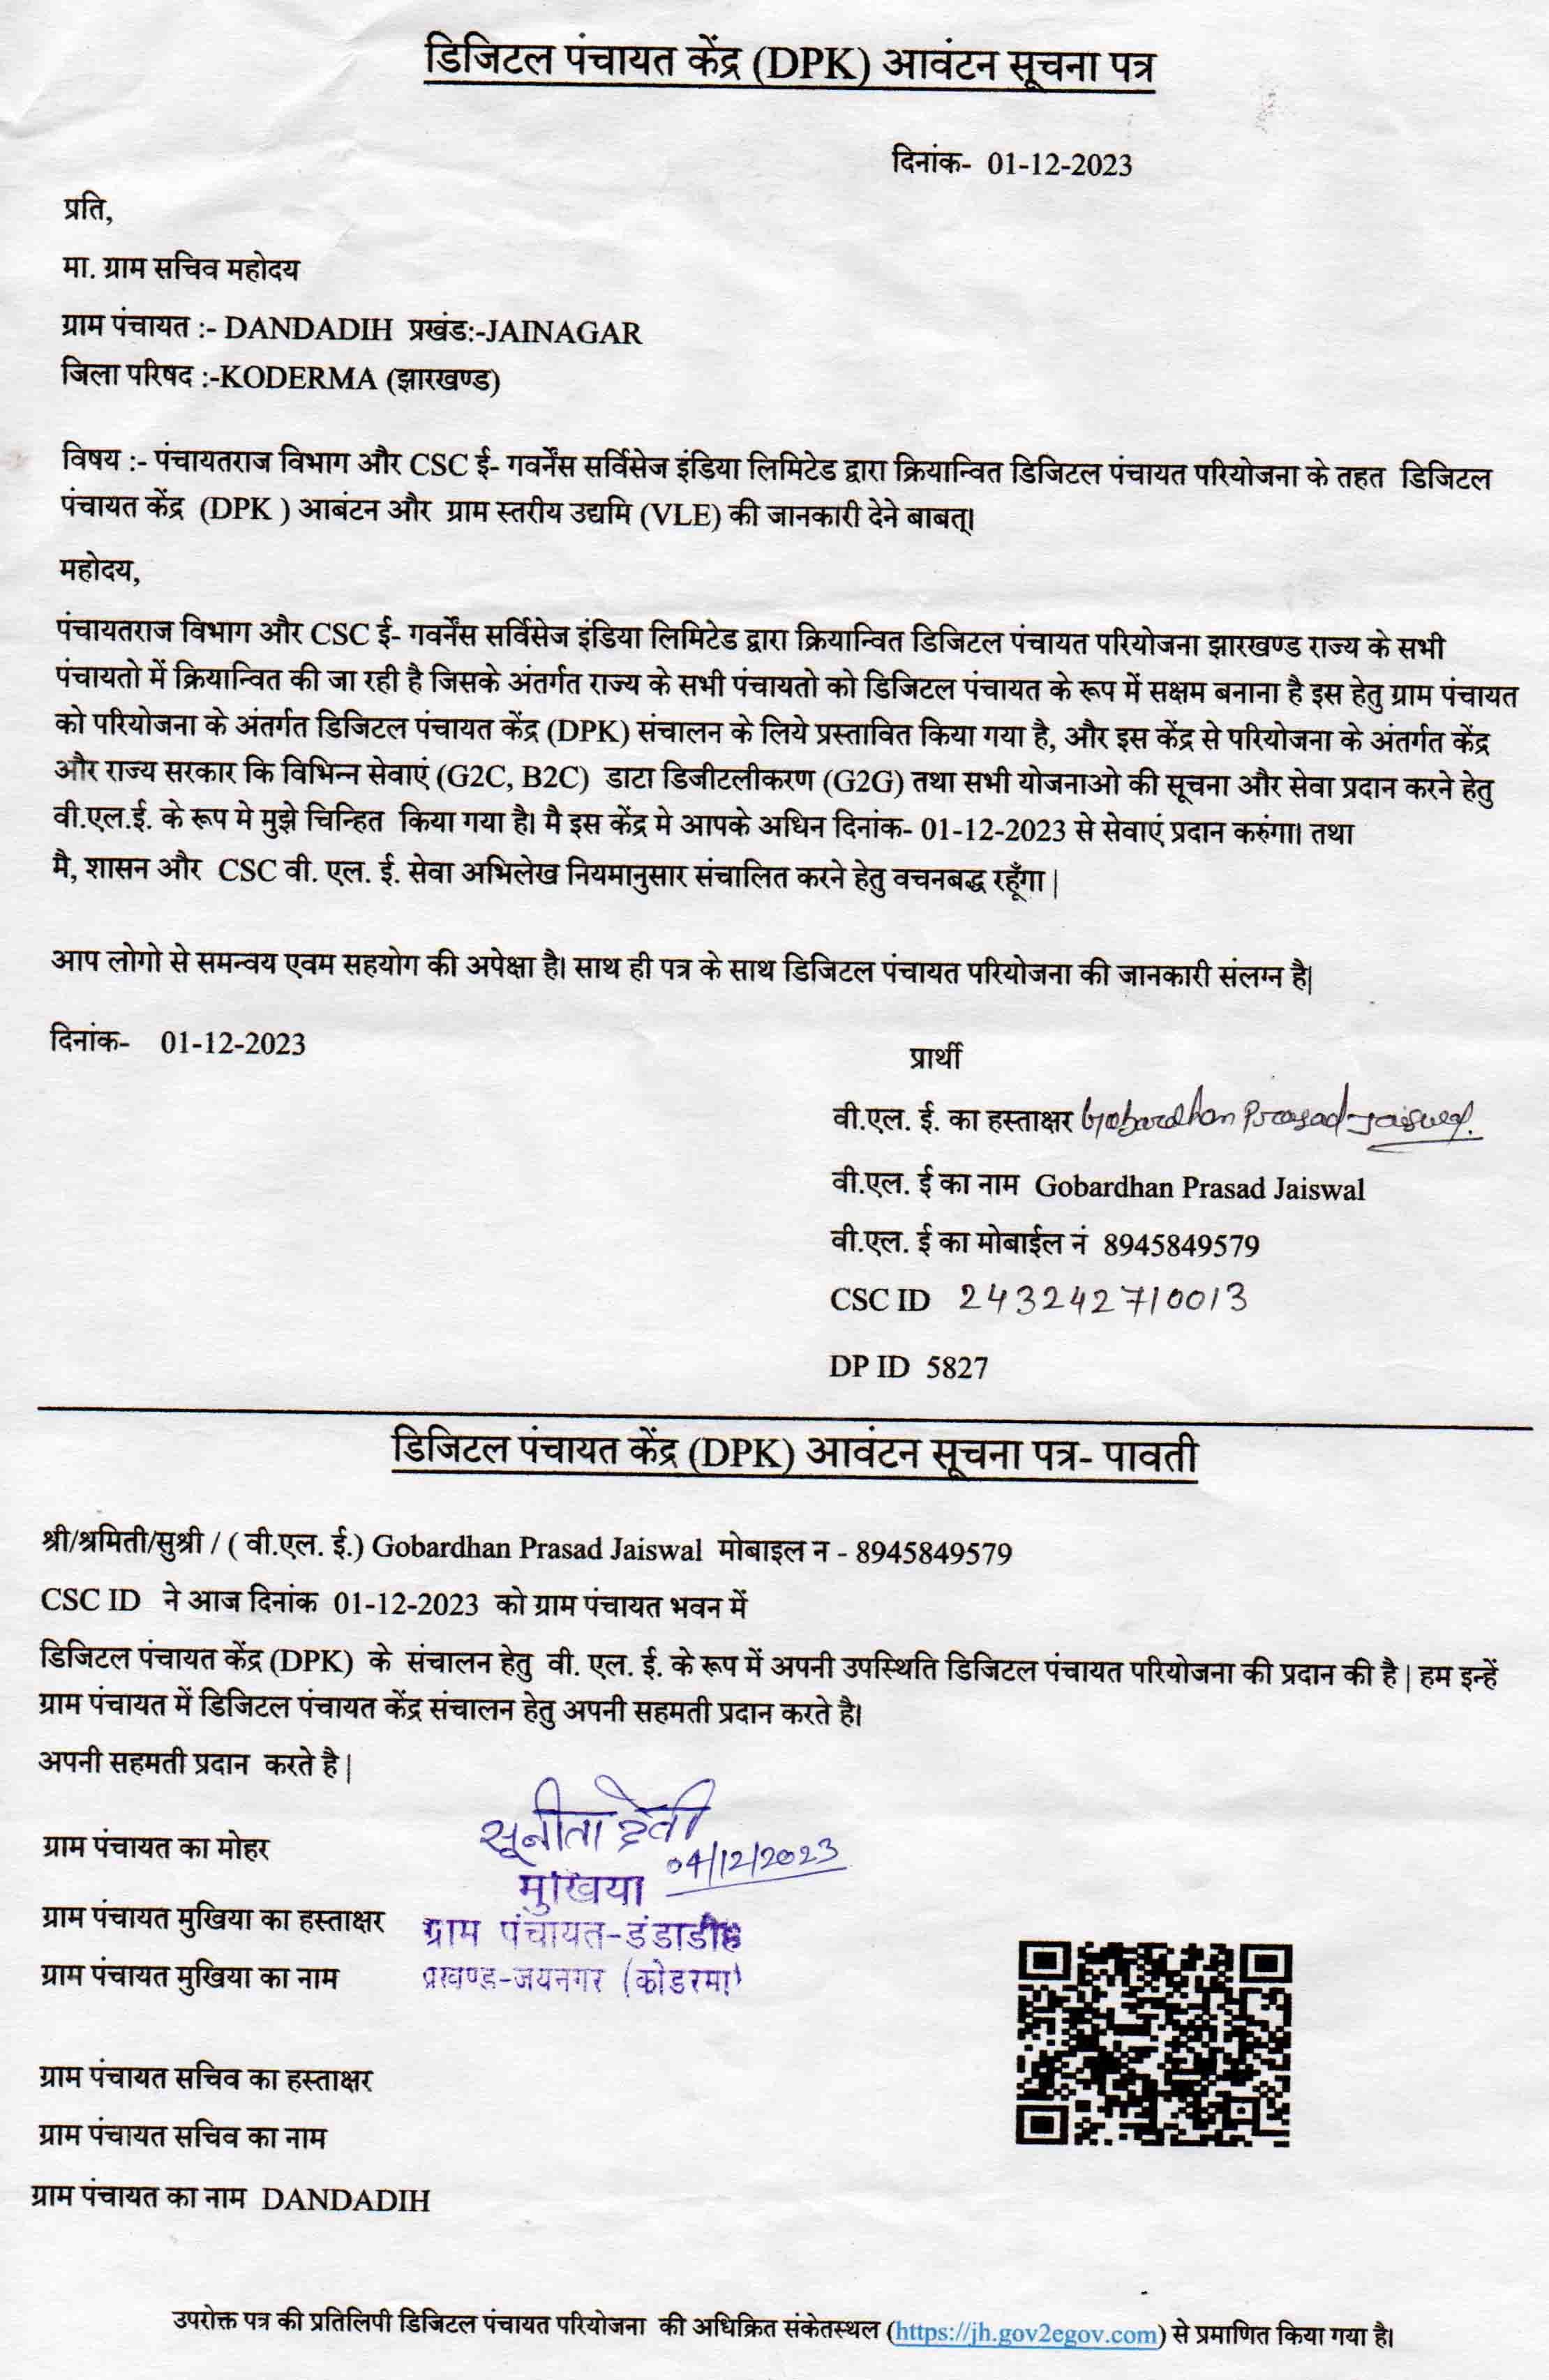 डिजिटल पंचायत केंद्र (DPK) आवंटन सूचना पत्र
दिनांक- 01-12-2023
प्रति,
मा. ग्राम सचिव महोदय
ग्राम पंचायत :- DANDADIH प्रखंड:-JAINAGAR
जिला परिषद :-KODERMA (झारखण्ड)
विषय :- पंचायतराज विभाग और CSC ई- गवर्नेंस सर्विसेज इंडिया लिमिटेड द्वारा क्रियान्वित डिजिटल पंचायत परियोजना के तहत डिजिटल
पंचायत केंद्र (DPK ) आबंटन और ग्राम स्तरीय उद्यमि (VLE) की जानकारी देने बाबत्।
महोदय,
पंचायतराज विभाग और CSC ई- गवर्नेंस सर्विसेज इंडिया लिमिटेड द्वारा क्रियान्वित डिजिटल पंचायत परियोजना झारखण्ड राज्य के सभी
पंचायतो में क्रियान्वित की जा रही है जिसके अंतर्गत राज्य के सभी पंचायतो को डिजिटल पंचायत के रूप में सक्षम बनाना है इस हेतु ग्राम पंचायत
को परियोजना के अंतर्गत डिजिटल पंचायत केंद्र (DPK) संचालन के लिये प्रस्तावित किया गया है, और इस केंद्र से परियोजना के अंतर्गत केंद्र
और राज्य सरकार कि विभिन्न सेवाएं (G2C, B2C) डाटा डिजीटलीकरण (G2G) तथा सभी योजनाओ की सूचना और सेवा प्रदान करने हेतु
वी.एल.ई. के रूप मे मुझे चिन्हित किया गया है। मै इस केंद्र मे आपके अधिन दिनांक- 01-12-2023 से सेवाएं प्रदान करुंगा। तथा
मै, शासन और CSC वी. एल. ई. सेवा अभिलेख नियमानुसार संचालित करने हेतु वचनबद्ध रहूँगा |
आप लोगो से समन्वय एवम सहयोग की अपेक्षा है। साथ ही पत्र के साथ डिजिटल पंचायत परियोजना की जानकारी संलग्न है|
दिनांक- 01-12-2023
प्रार्थी
वी.एल. ई. का हस्ताक्षर Gobardhan Prasad Jaiswal.
वी.एल. ई का नाम Gobardhan Prasad Jaiswal
वी.एल. ई का मोबाईल नं 8945849579
CSC ID 243242710013
DP ID 5827
डिजिटल पंचायत केंद्र (DPK) आवंटन सूचना पत्र- पावती
श्री/श्रमिती/सुश्री / ( वी.एल. ई.) Gobardhan Prasad Jaiswal मोबाइल न - 8945849579
CSC ID ने आज दिनांक 01-12-2023 को ग्राम पंचायत भवन में
डिजिटल पंचायत केंद्र (DPK) के संचालन हेतु वी. एल. ई. के रूप में अपनी उपस्थिति डिजिटल पंचायत परियोजना की प्रदान की है | हम इन्हें
ग्राम पंचायत में डिजिटल पंचायत केंद्र संचालन हेतु अपनी सहमती प्रदान करते है।
अपनी सहमती प्रदान करते है |
सूनीता देवी
04/12/2023
ग्राम पंचायत का मोहर
मुखिया
ग्राम पंचायत मुखिया का हस्ताक्षर
ग्राम पंचायत-डंडाडीह
ग्राम पंचायत मुखिया का नाम
प्रखण्ड-जयनगर (कोडरमा)
ग्राम पंचायत सचिव का हस्ताक्षर
ग्राम पंचायत सचिव का नाम
ग्राम पंचायत का नाम DANDADIH
उपरोक्त पत्र की प्रतिलिपी डिजिटल पंचायत परियोजना की अधिक्रित संकेतस्थल (https://jh.gov2egov.com) से प्रमाणित किया गया है।